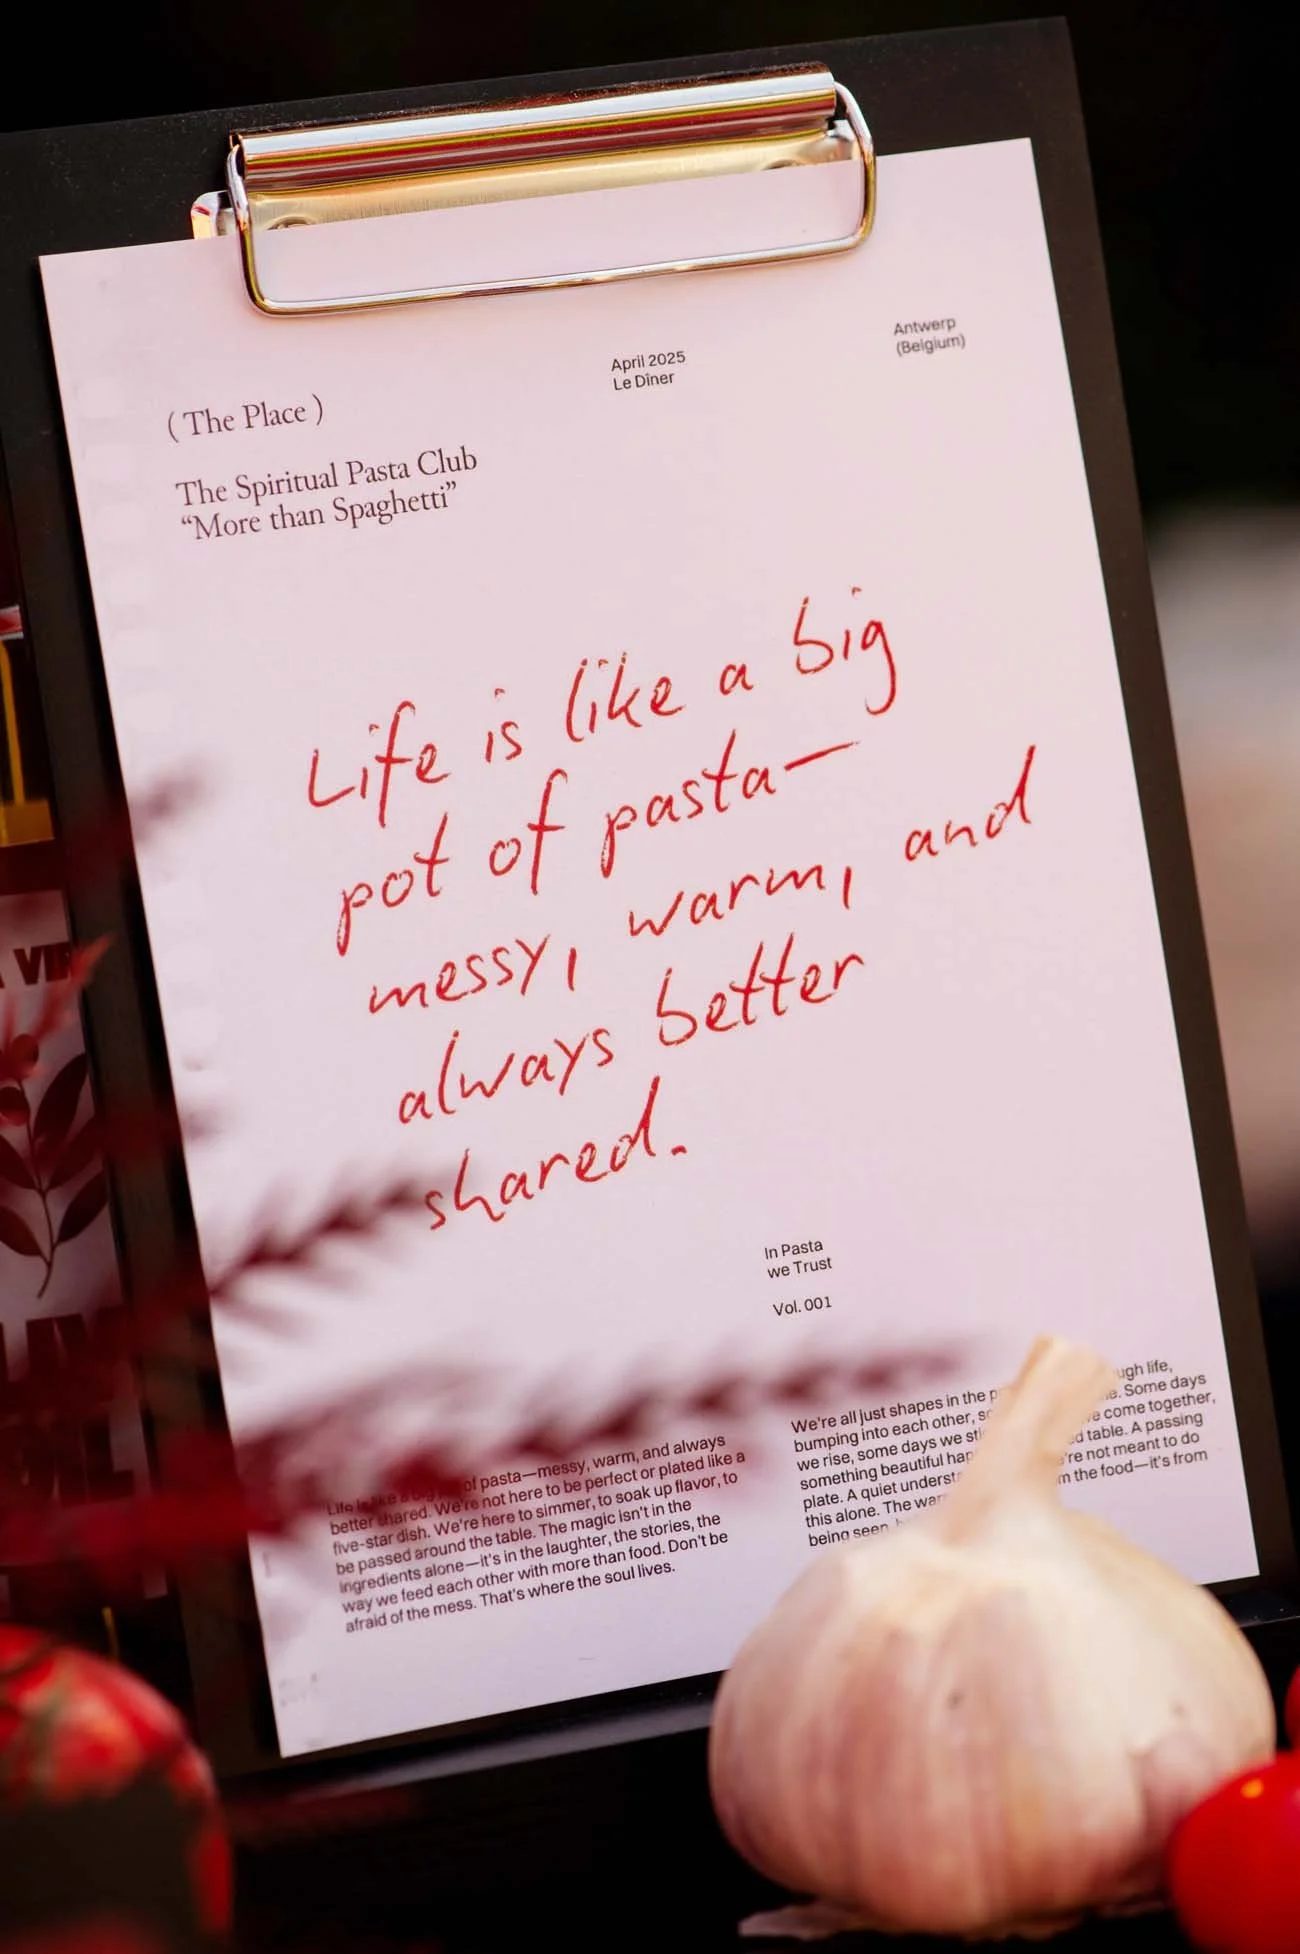 April 2025
Le Dîner
Antwerp
(Belgium)
( The Place )
The Spiritual Pasta Club
“More than Spaghetti”
Life is like a big
pot of pasta—
messy, warm, and
always better
shared.
In Pasta
we Trust
Vol. 001
Life is like a big of pasta—messy, warm, and always
better shared. We're not here to be perfect or plated like a
five-star dish. We're here to simmer, to soak up flavor, to
be passed around the table. The magic isn't in the
ingredients alone—it's in the laughter, the stories, the
way we feed each other with more than food. Don't be
afraid of the mess. That's where the soul lives.
We're all just shapes in the life,
bumping into each other, Some days
we rise, some days we come together,
something beautiful table. A passing
plate. A quiet not meant to do
this alone. The the food—it's from
being seen